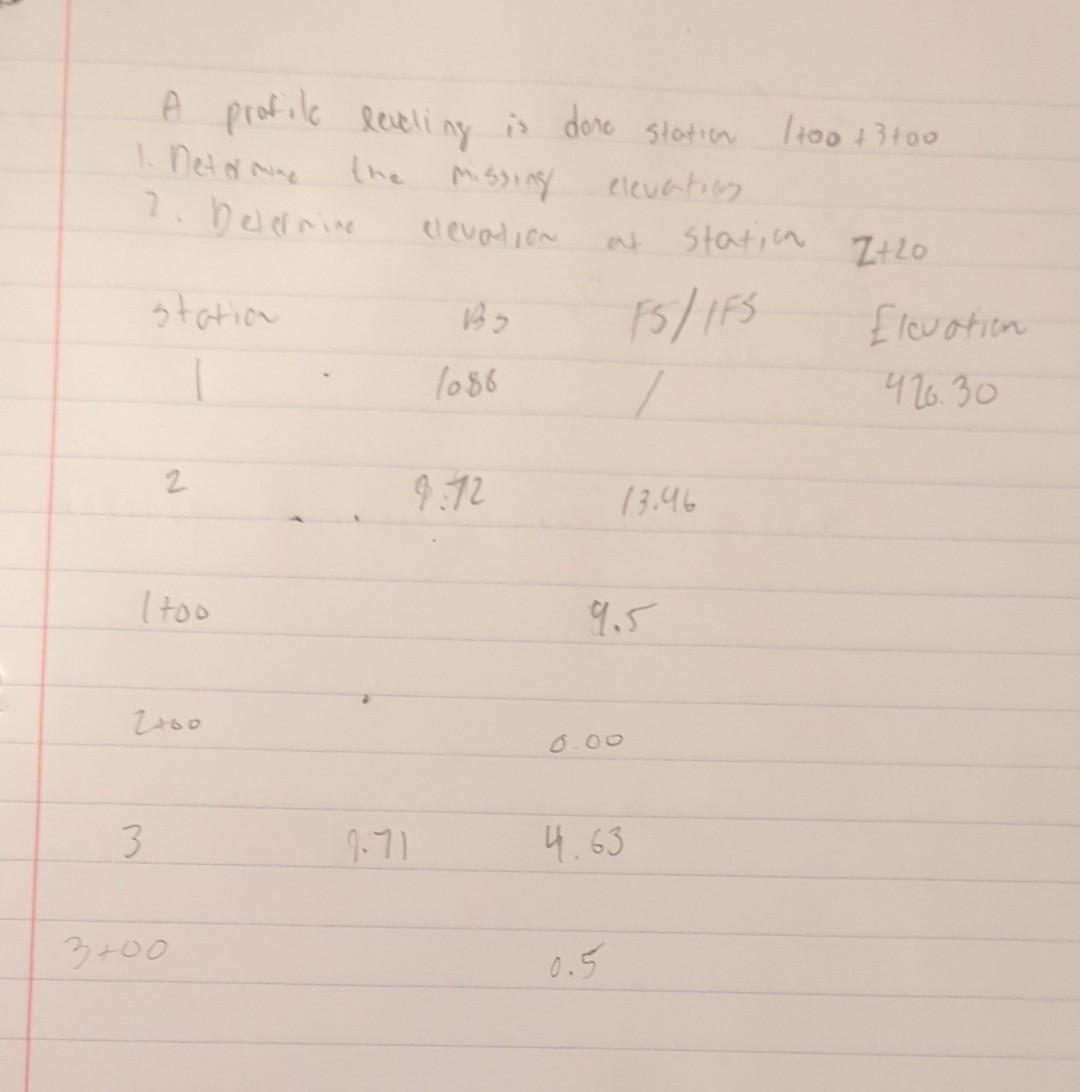 A profile leveling is done station 1+00 + 3+00
1. Determine the missing elevation
2. Determine elevation at station 2+20
station BS FS/IFS Elevation
1 1086 / 426.30
2 9.72 13.46
1+00 9.5
2+00 0.00
3 9.71 4.63
3+00 0.5